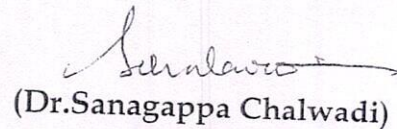 (Dr.Sanagappa Chalwadi)